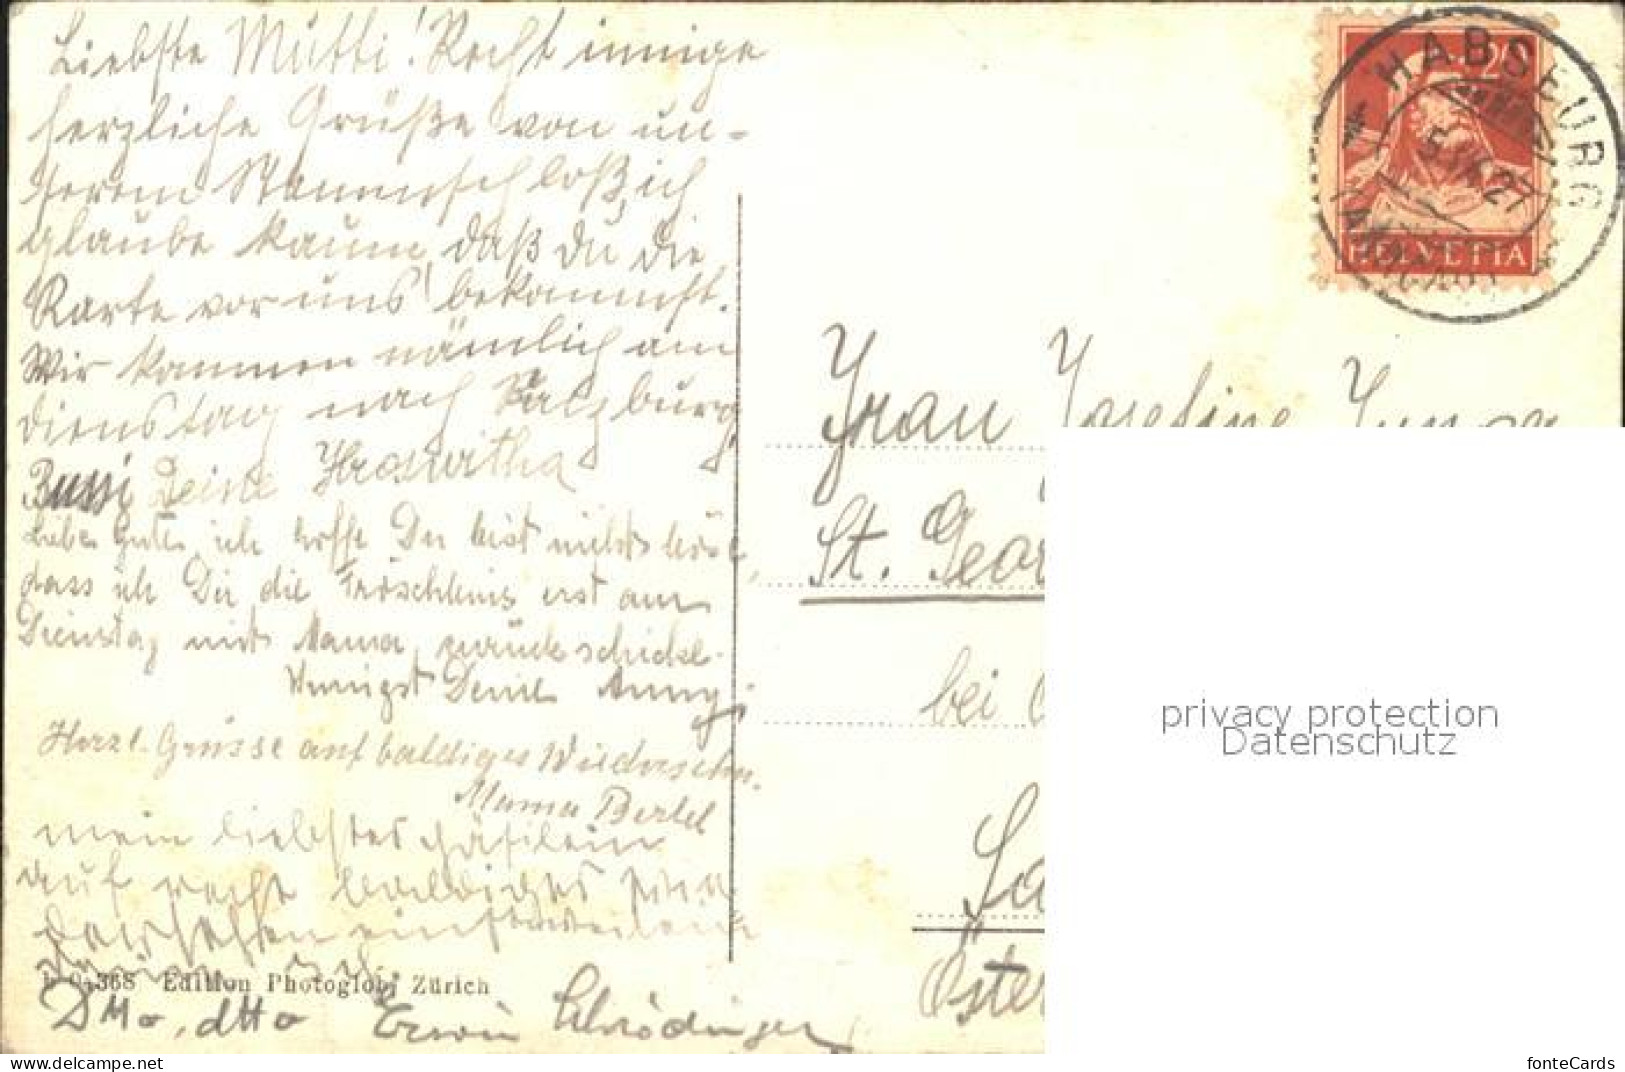 Liebste Mutti! Recht innige
herzliche Grüße von un-
serem Stammschloß, ich
glaube kaum, daß du die
Karte vor uns bekommst.
Wir kommen nämlich am
Dienstag nach Salzburg
Bussi Deine Hroswitha
Liebe Gute, ich hoffe Du bist nicht böse,
dass ich Dir die Fröschleins erst am
Dienstag mit Mama zurückschicke.
Innigst Deine Anny
Herzl. Grüsse auf baldiges Wiedersehn.
Mama Bertel
mein liebstes
auf recht baldiges
Dtto, dtto Erwin Schrödinger
E 04368 Edition Photoglob, Zürich
HABSBURG
5. 27
(AARGAU)
20
HELVETIA
Frau Josefine
St. Geor
bei
Sa
Öster
privacy protection
Datenschutz
delcampe.net
fonteCards